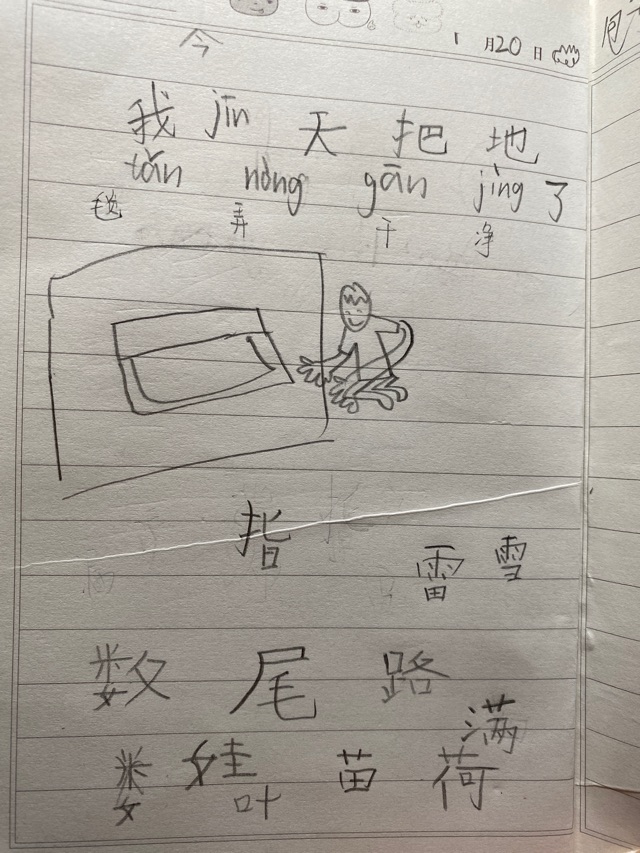 1月20日
今
我jīn天把地
tǎn nòng gān jìng了
毯 弄 干 净
指
雷 雪
数 尾 路
满
娄 娃 苗 荷
叶